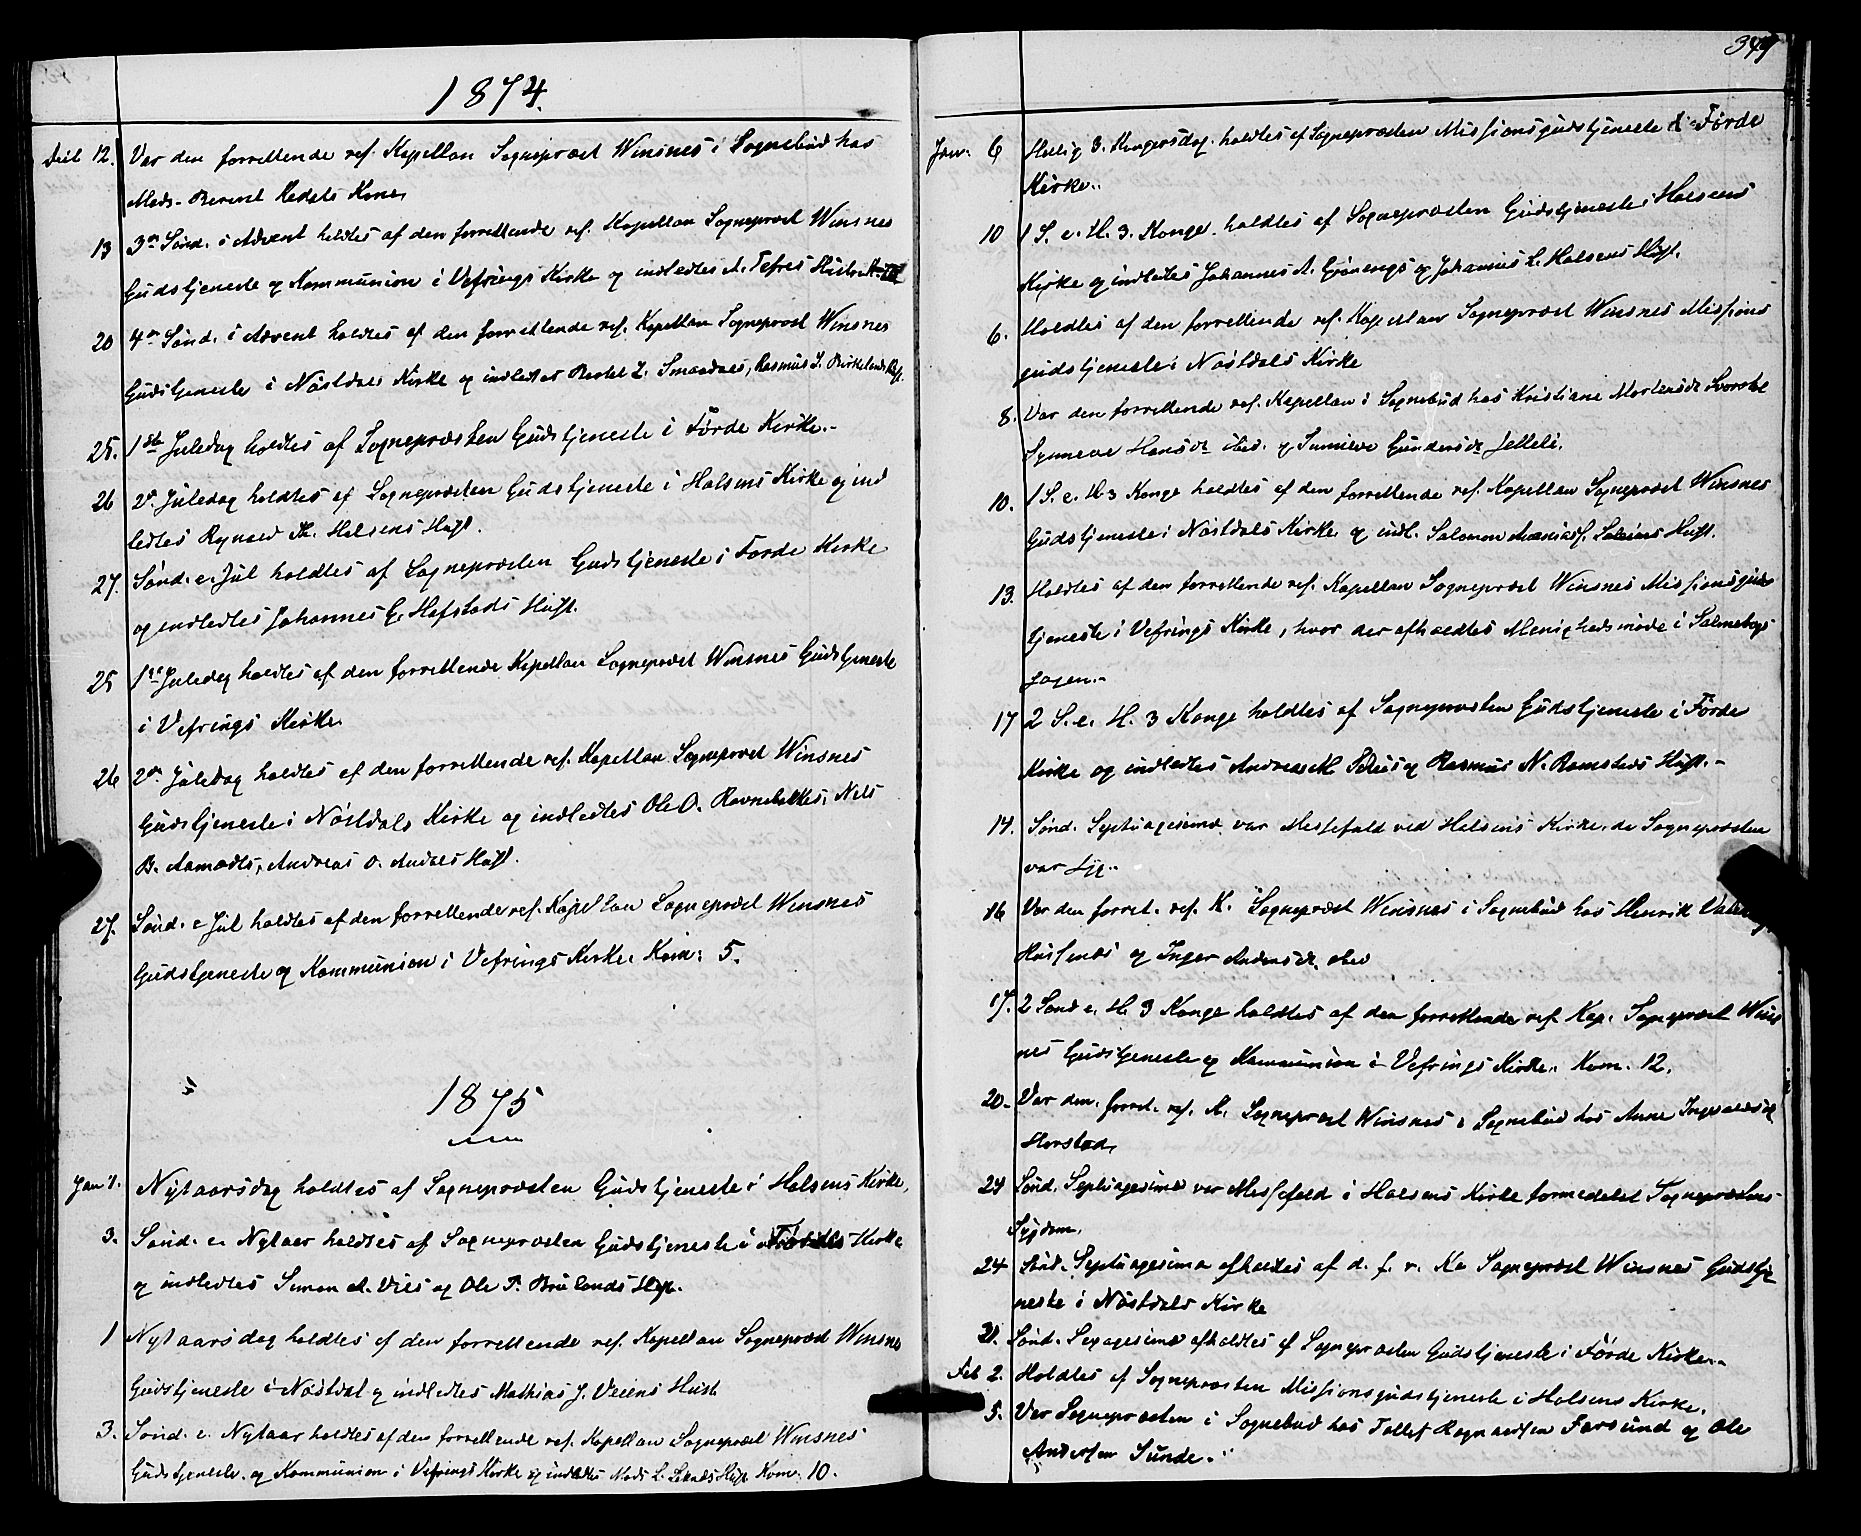 1874.
12. Var den forrettende res. Kapellan Sogneprest Winsnes i Sognebud hos
Mads Kone.
13 3die Sönd. i Advent holdtes af den forrettende res. Kapellan Sogneprest Winsnes
Gudstjeneste og Kommunion i Vefrings Kirke og indledtes A. Tefres Hustru
20 4de Sönd. i Advent holdtes af den forrettende res. Kapellan Sogneprest Winsnes
Gudstjeneste i Nöstdals Kirke og indledtes Bertel L. Rasmus J. Birkelands
25. 1ste Juledag holdtes af Sognepresten Gudstjeneste i Förde Kirke.-
26 2d. Juledag holdtes af Sognepresten Gudstjeneste i Holsens Kirke og ind
ledtes Holsens Hust.
27. Sönd. e. Jul holdtes af Sognepresten Gudstjeneste i Förde Kirke
og indledtes Johannes G. Hafstads Hust.
25 1ste Juledag holdtes af den forrettende Kapellan Sogneprest Winsnes Gudstjeneste
i Vefrings Kirke.
26 2den Juledag holdtes af den forrettende res. Kapellan Sogneprest Winsnes
Gudstjeneste i Nöstdals Kirke og indledtes Ole O. Nils
B. Andreas O. Hust.
27. Sönd. e Jul holdtes af den forrettende res. Kapellan Sogneprest Winsnes
Gudstjeneste og Kommunion i Vefrings Kirke. Kom: 5.
1875
Jan 1. Nytaarsdag holdtes af Sognepresten Gudstjeneste i Holsens Kirke,
3. Sönd. e. Nytaar holdtes af Sognepresten Gudstjeneste i Kirke
og indledtes Simon A. Vies og Ole P. Brulands
1 Nytaarsdag holdtes af den forrettende res. Kapellan Sogneprest Winsnes
Gudstjeneste i Nöstdal og indledtes Mathias J. Veiens Hust
3. Sönd. e. Nytaar holdtes af den forrettende res. Kapellan Sogneprest Winsnes
Gudstjeneste og Kommunion i Vefrings Kirke og indledtes Mads L. Kom: 10.
349
Jan: 6 Hellig 3. Kongersdag holdtes af Sognepresten Missionsgudstjeneste i Förde
Kirke..
10 1 S. e. H. 3. Konge holdtes af Sognepresten Gudstjeneste i Holsens
Kirke og indledtes Johannes A. og Johannes L. Holsens Hust.
6. Holdtes af den forrettende res. Kapellan Sogneprest Winsnes Missions
gudstjeneste i Nöstdals Kirke
8. Var den forrettende res. Kapellan i Sognebud hos Kristiane Mortensdr
Synneve Hansdr ibid. og Sunnieve Gundersdr
10. 1 S. e. H. 3 Konge holdtes af den forrettende res. Kapellan Sogneprest Winsnes
Gudstjeneste i Nöstdals Kirke og indl. Salomon Hust.
13. Holdtes af den forrettende res. Kapellan Sogneprest Winsnes Missionsguds
tjeneste i Vefrings Kirke, hvor der afholdtes Menighedsmöde i
sagen.-
17 2 S. e. H. 3 Konge holdtes af Sognepresten Gudstjeneste i Förde
Kirke og indledtes Andreas M. og Rasmus N. Ramstads Hust.-
14. Sönd. Septuagesima var Messefald ved Holsens Kirke, da Sognepresten
var syg..
16 Var den forret. res. K. Sogneprest Winsnes i Sognebud hos Henrik
og Inger Andersdr. ibid
17. 2 Sönd e. H. 3 Konge holdtes af den forrettende res. Kap. Sogneprest Wins
nes Gudstjeneste og Kommunion i Vefrings Kirke. Kom. 12.
20. Var den forret. res. K. Sogneprest Winsnes i Sognebud hos Anne
Horstad,
24 Sönd. Septuagesima var Messefald i Holsens Kirke formedelst Sogneprestens
Sygdom.
24 Sönd. Septuagesima afholdtes af d. f. r. Ka Sogneprest Winsnes Gudstje
neste i Nöstdals Kirke
31. Sönd. Sexagesima afholdtes af Sognepresten Gudstjeneste i Förde Kirke.-
Feb 2. Holdtes af Sognepresten Missionsgudstjeneste i Holsens Kirke.
5. Var Sognepresten i Sognebud hos Tollef Farsund og Ole
Andersen Sunde.